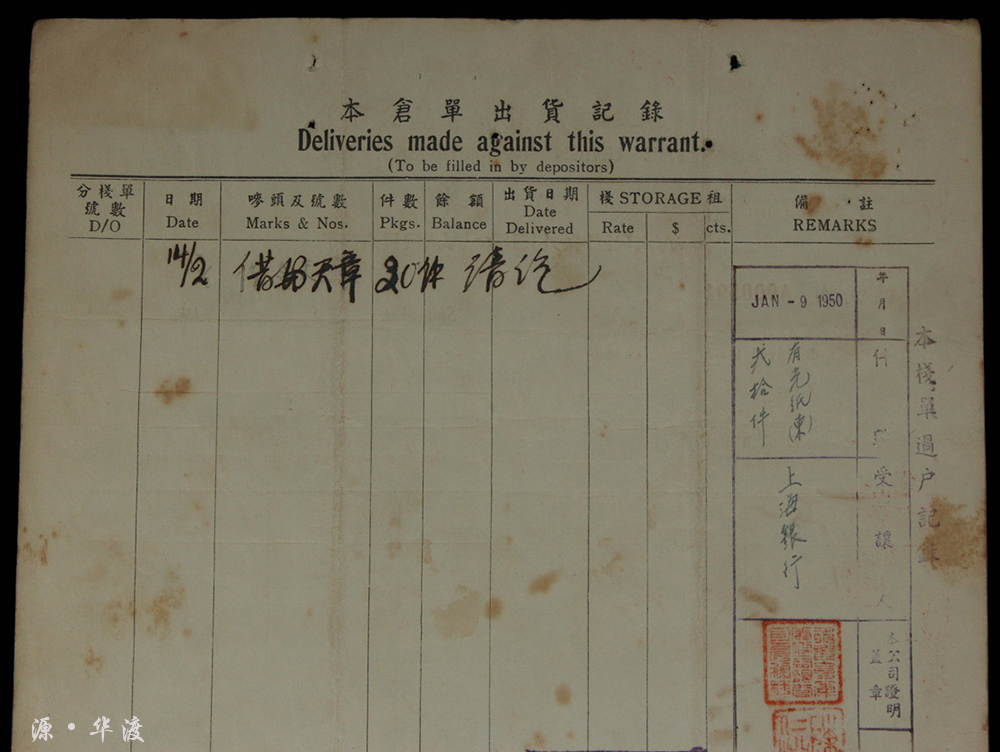 本倉單出貨記錄
Deliveries made against this warrant.
(To be filled in by depositors)
分棧單號數 D/O
日期 Date
嘜頭及號數 Marks & Nos.
件數 Pkgs.
餘額 Balance
出貨日期 Date Delivered
棧 STORAGE 租
Rate
$
cts.
備註 REMARKS
14/2
天章
件
本棧單過户記錄
年月日
JAN - 9 1950
件
有光紙(東)
弍拾件
受讓人
上海銀行
本公司證明蓋章
源·华渡